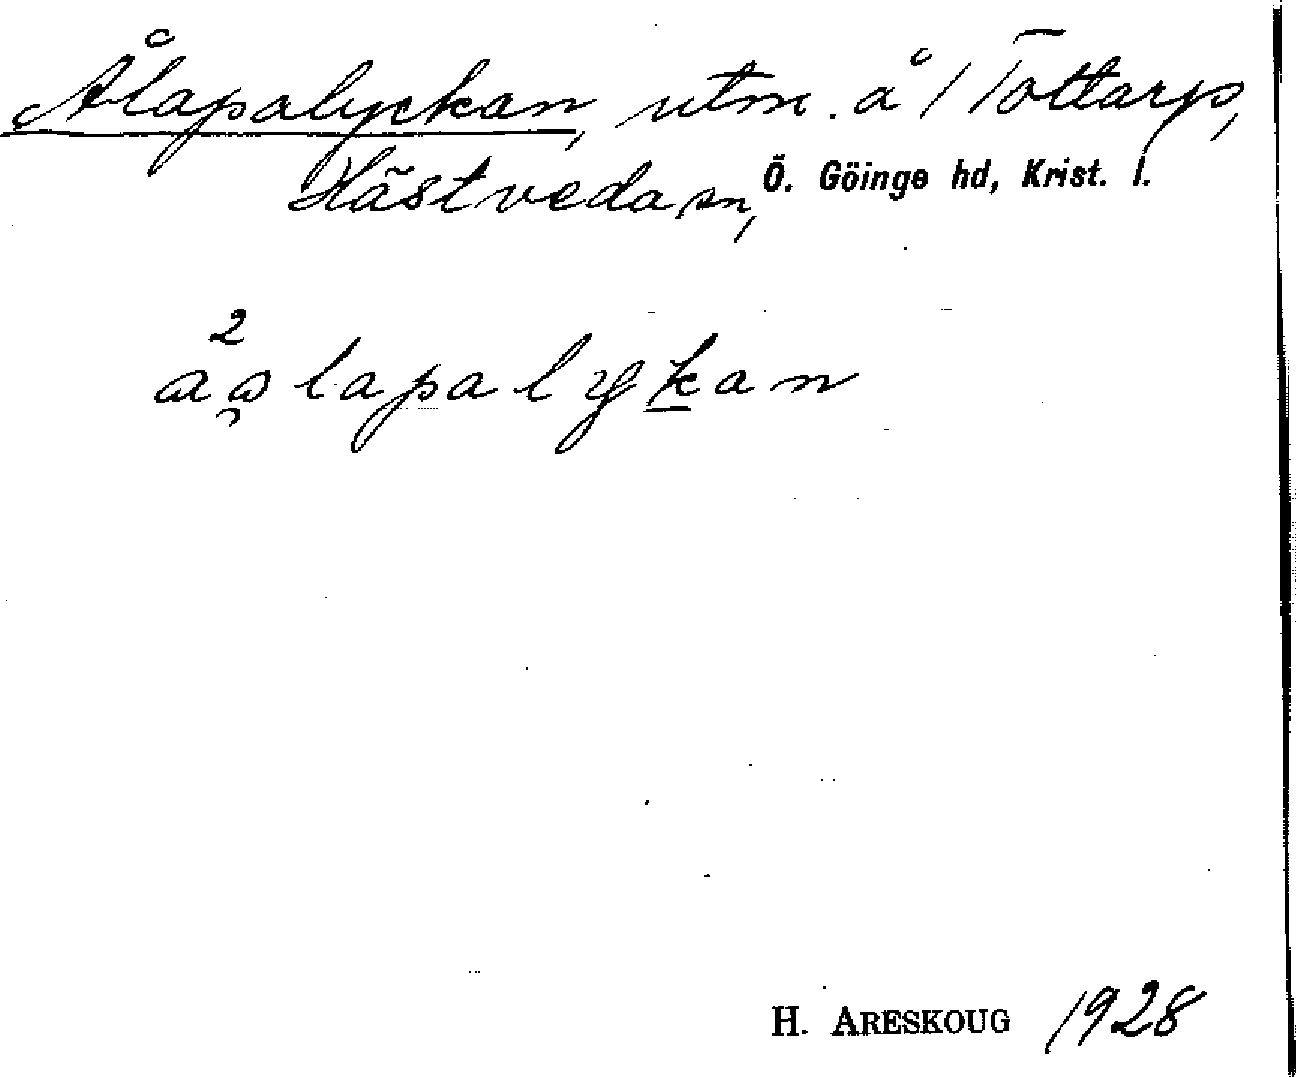 Ålapalyckan, utm. å 1 Tottarp,
Hästveda sn, Ö. Göinge hd, Krist. l.
2
aålapalykan
H. ARESKOUG 1928